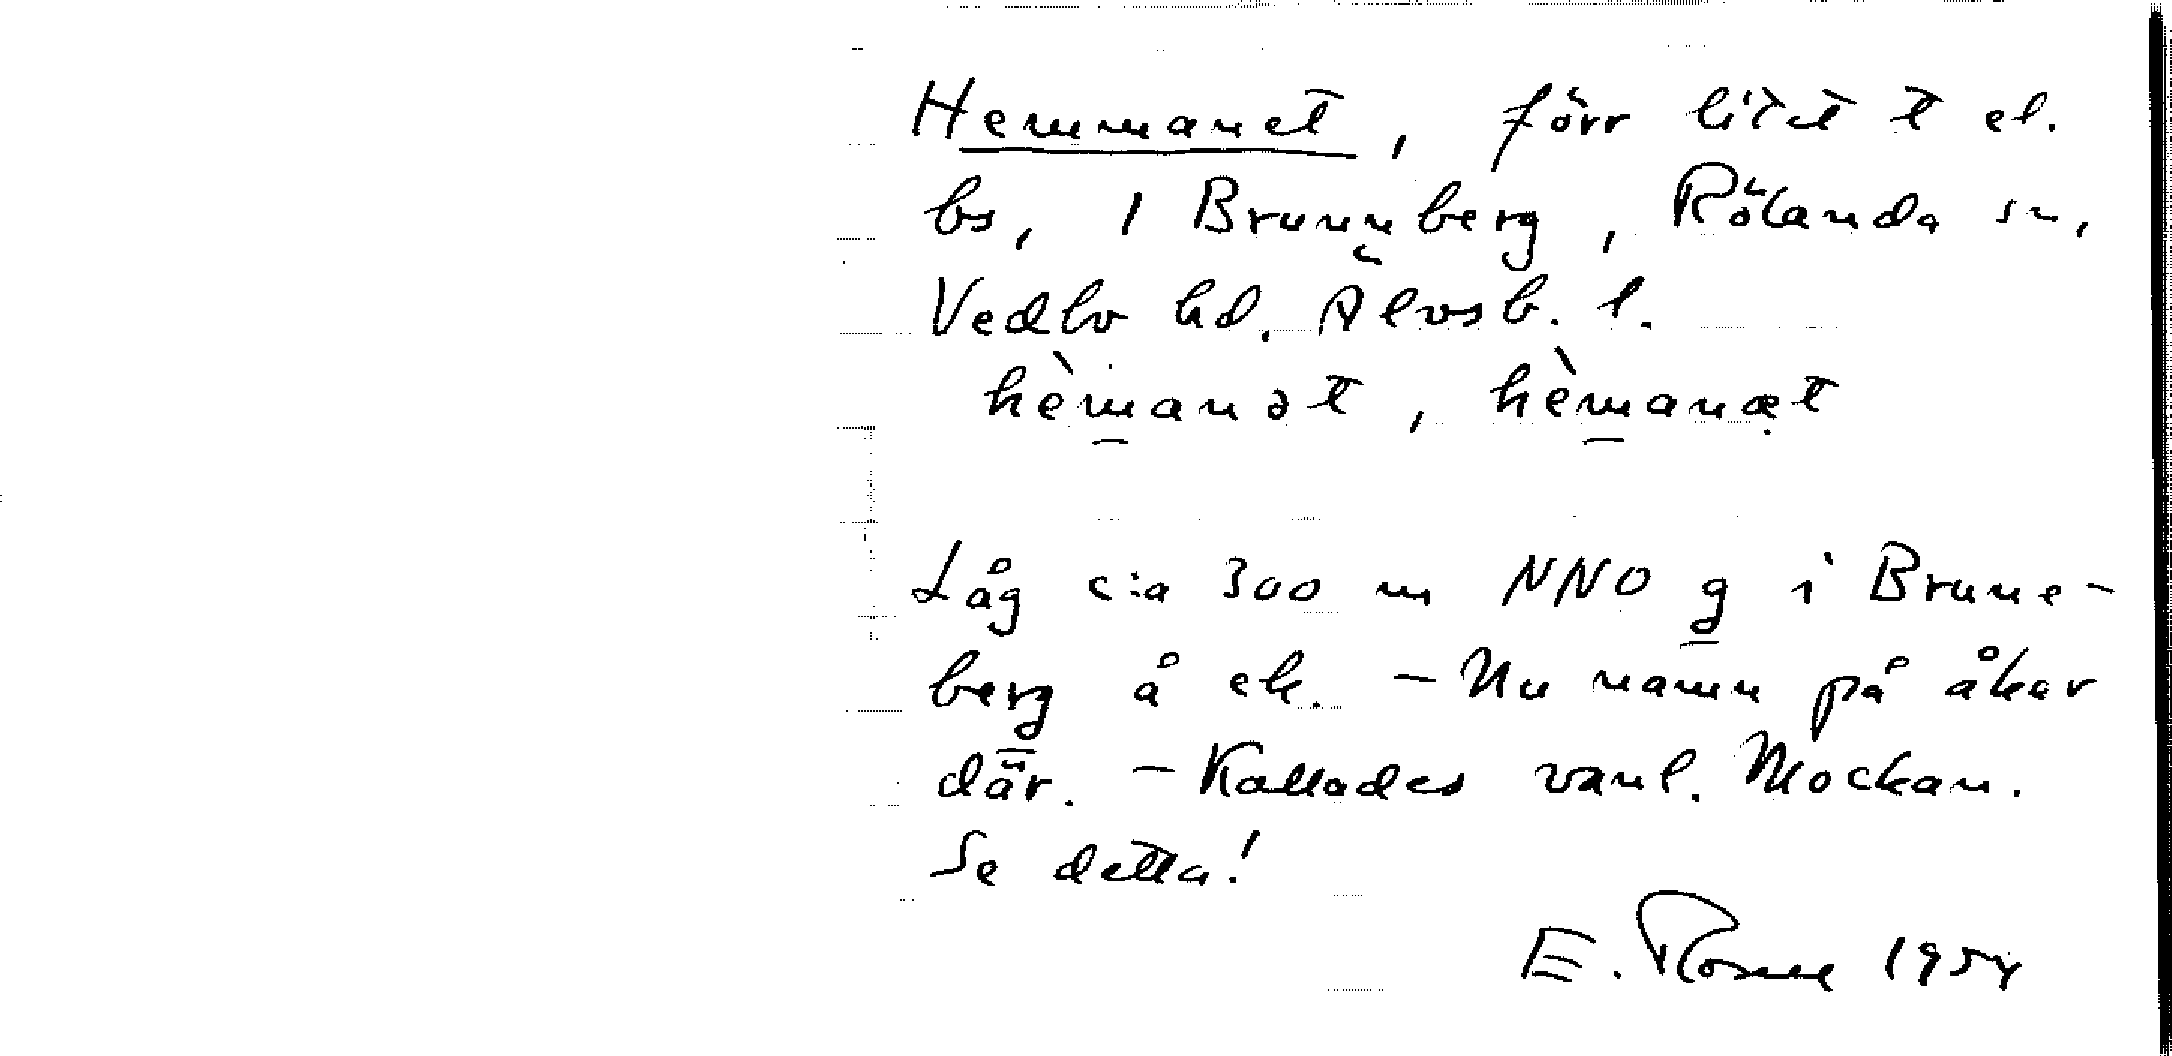 Hemmanet, förr litet t el.
bs, i Brunnberg, Rölanda sn,
Vedbo hd. Älvsb. l.
hèm̱anət, hèm̱anæ̣t
Låg c:a 300 m NNO g̱ i Brune-
berg å ek. – Nu namn på åkar
där. – Kallades vanl. Mockan.
Se detta!
E. 1954